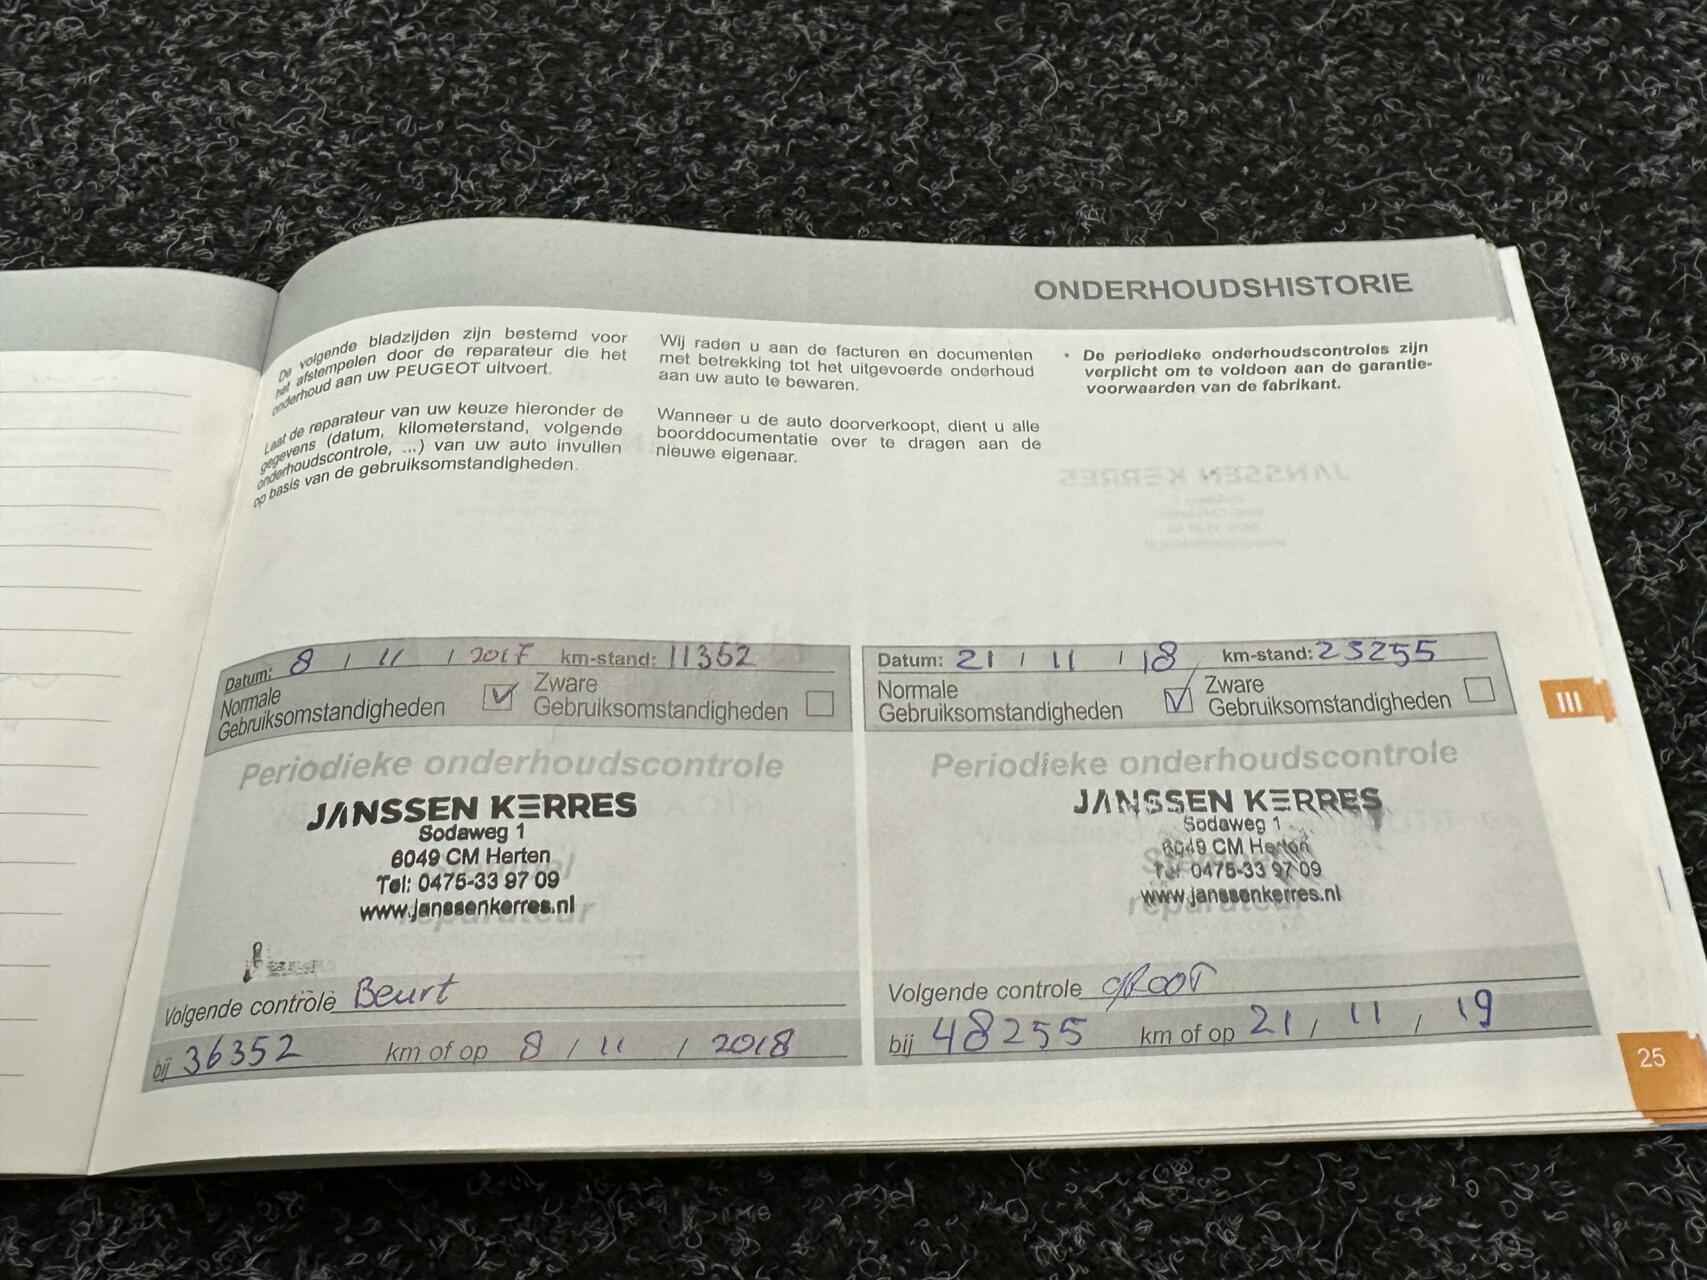 ONDERHOUDSHISTORIE
De volgende bladzijden zijn bestemd voor
het afstempelen door de reparateur die het
onderhoud aan uw PEUGEOT uitvoert.
Laat de reparateur van uw keuze hieronder de
gegevens (datum, kilometerstand, volgende
onderhoudscontrole, ...) van uw auto invullen
op basis van de gebruiksomstandigheden.
Wij raden u aan de facturen en documenten
met betrekking tot het uitgevoerde onderhoud
aan uw auto te bewaren.
Wanneer u de auto doorverkoopt, dient u alle
boorddocumentatie over te dragen aan de
nieuwe eigenaar.
• De periodieke onderhoudscontroles zijn
verplicht om te voldoen aan de garantie-
voorwaarden van de fabrikant.
JANSSEN KERRES
Datum: 8 / 11 / 2017 km-stand: 11352
Normale
Gebruiksomstandigheden
Zware
Gebruiksomstandigheden
Periodieke onderhoudscontrole
JANSSEN KERRES
Sodaweg 1
6049 CM Herten
Tel: 0475-33 97 09
www.janssenkerres.nl
reparateur
Volgende controle Beurt
bij 36352 km of op 8 / 11 / 2018
Datum: 21 / 11 / 18 km-stand: 23255
Normale
Gebruiksomstandigheden
Zware
Gebruiksomstandigheden
Periodieke onderhoudscontrole
JANSSEN KERRES
Sodaweg 1
6049 CM Herten
Tel 0475-33 97 09
www.janssenkerres.nl
reparateur
Volgende controle groot
bij 48255 km of op 21 / 11 / 19
III
25